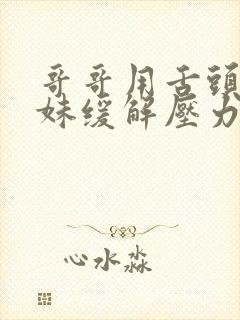 哥哥用舌頭
妹缓解壓力
心水淼